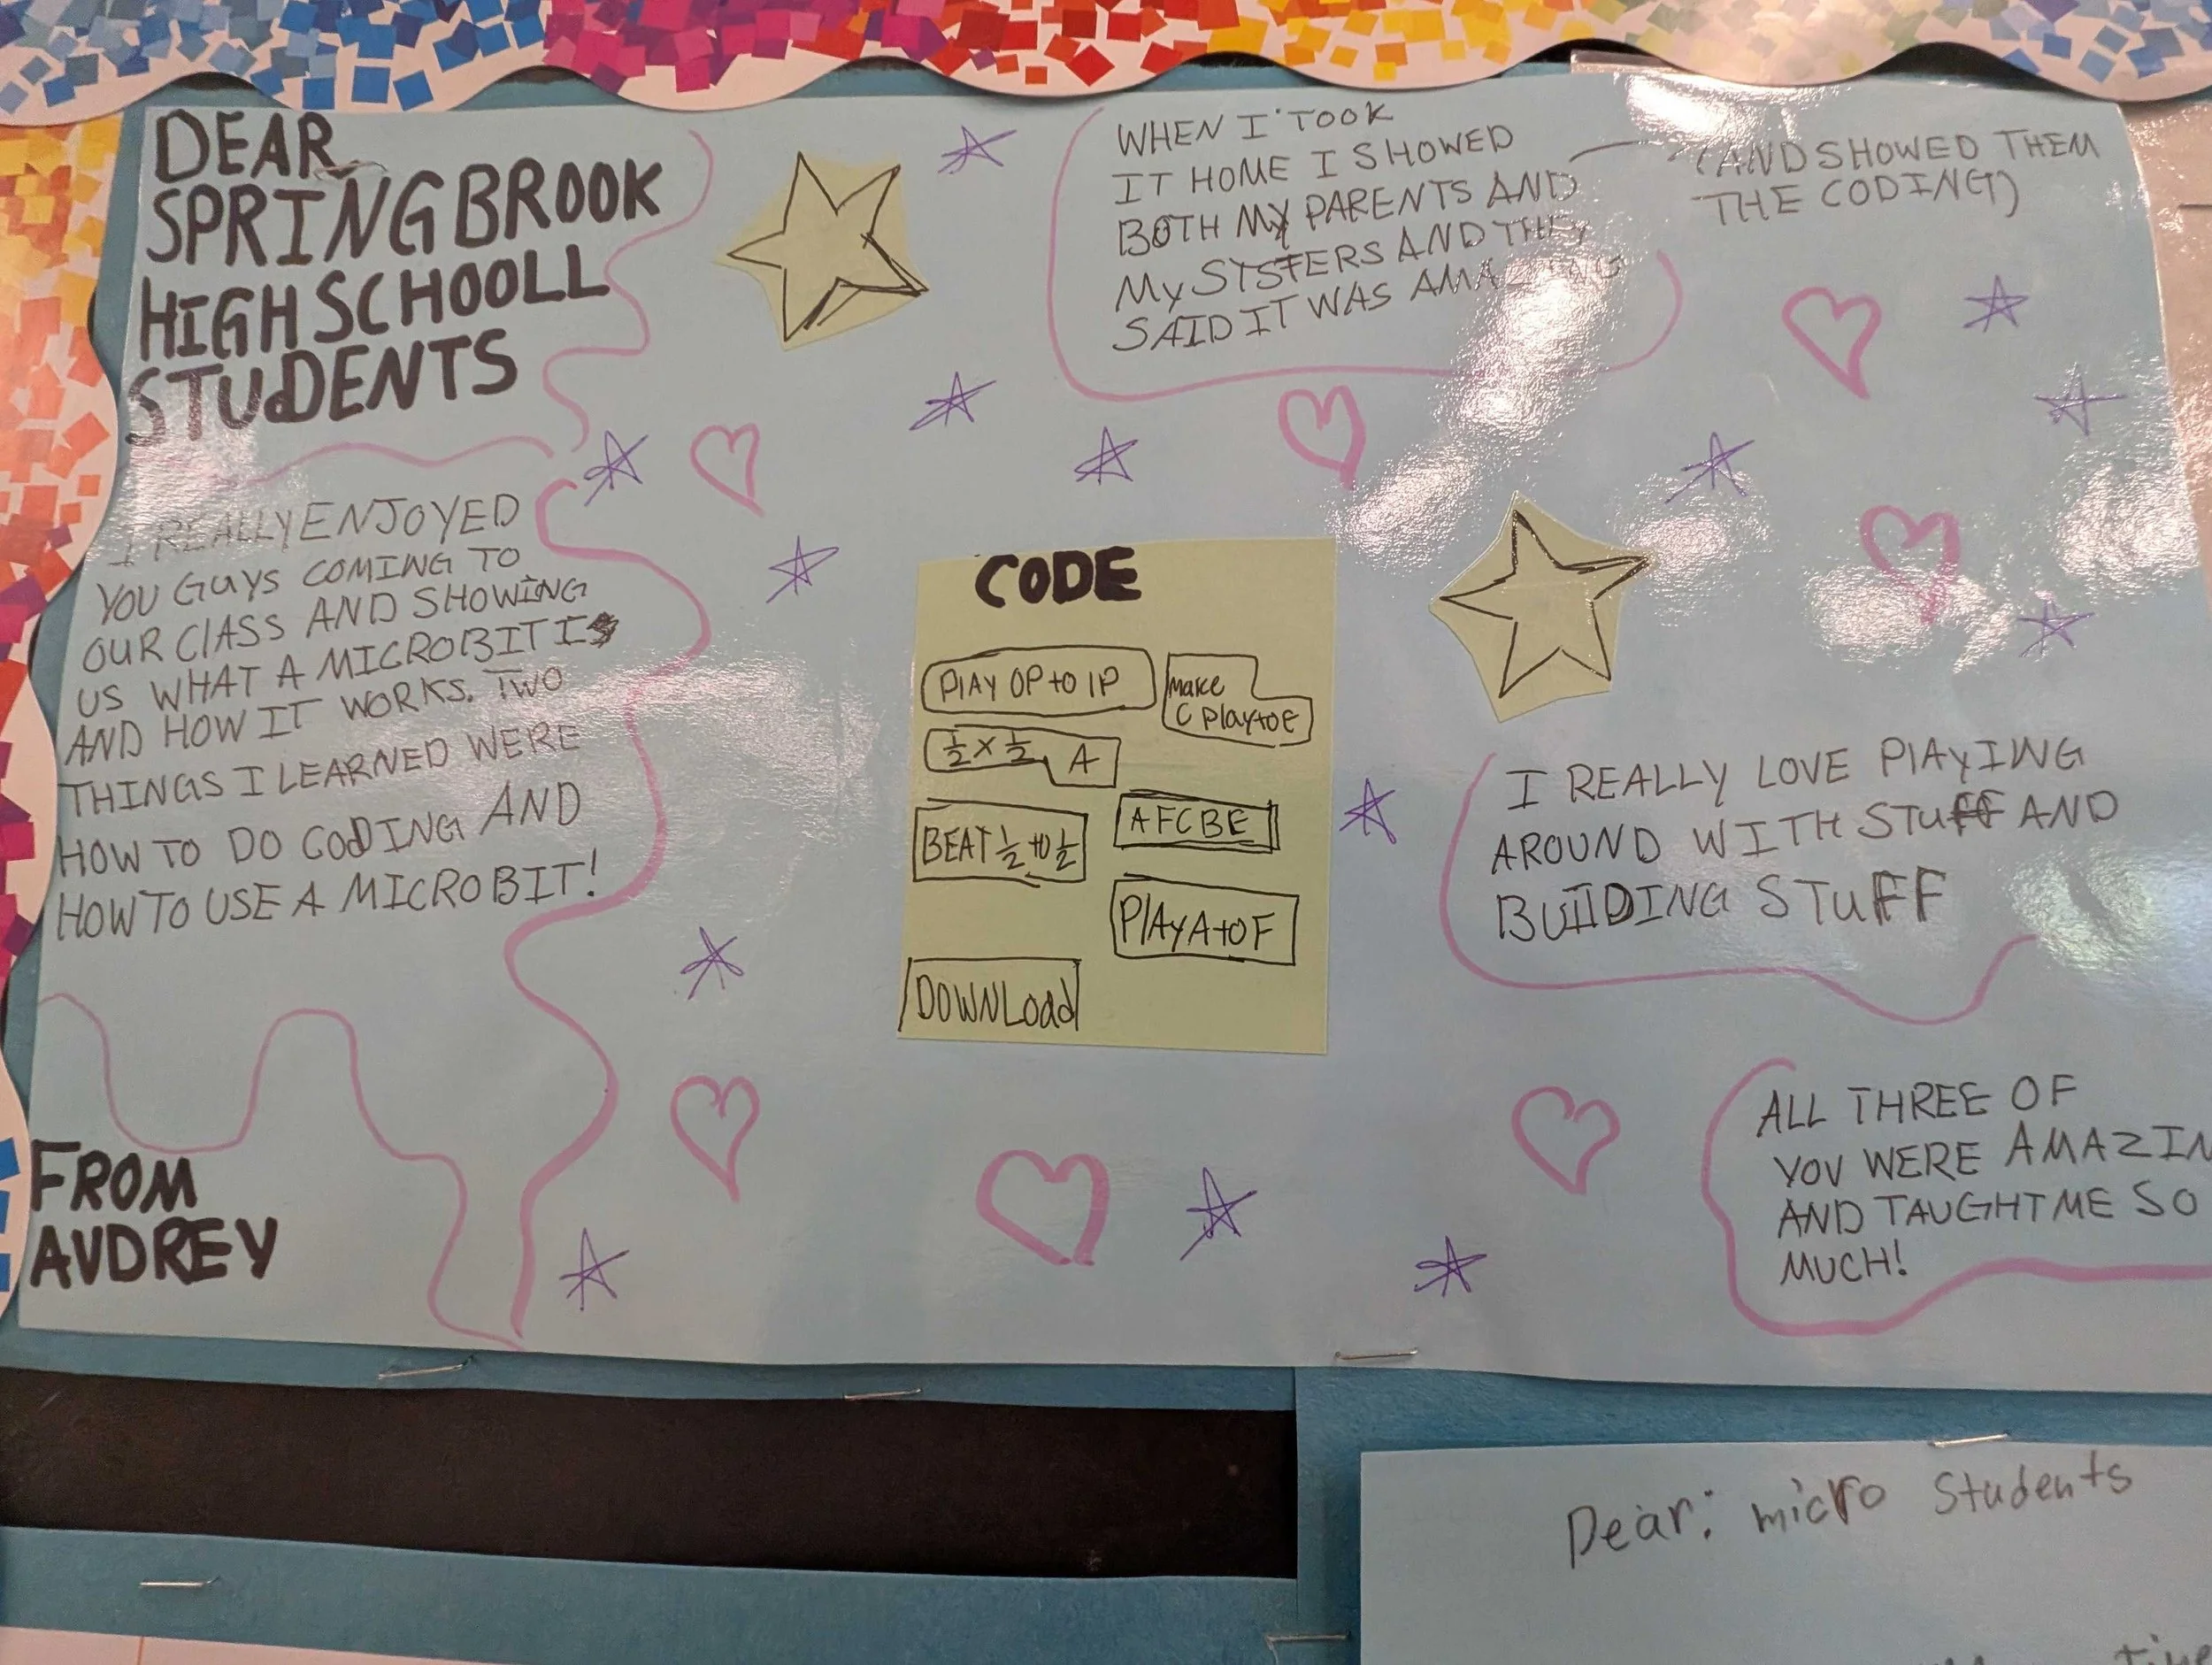 DEAR
SPRINGBROOK
HIGH SCHOOLL
STUDENTS
I REALLY ENJOYED
YOU GUYS COMING TO
OUR CLASS AND SHOWING
US WHAT A MICROBIT IS
AND HOW IT WORKS. TWO
THINGS I LEARNED WERE
HOW TO DO CODING AND
HOW TO USE A MICROBIT!
FROM
AUDREY
WHEN I TOOK
IT HOME I SHOWED
BOTH MY PARENTS AND
MY SYSTERS AND THEY
SAID IT WAS AMAZING
(AND SHOWED THEM
THE CODING)
CODE
PLAY OP to IP
Make
C Play to E
1/2 X 1/2 A
BEAT 1/2 to 1/2
AFCBE
PLAY A to F
DOWNLoad
I REALLY LOVE PLAYING
AROUND WITH STUFF AND
BUILDING STUFF
ALL THREE OF
YOU WERE AMAZIN
AND TAUGHT ME SO
MUCH!
Dear: micro Students